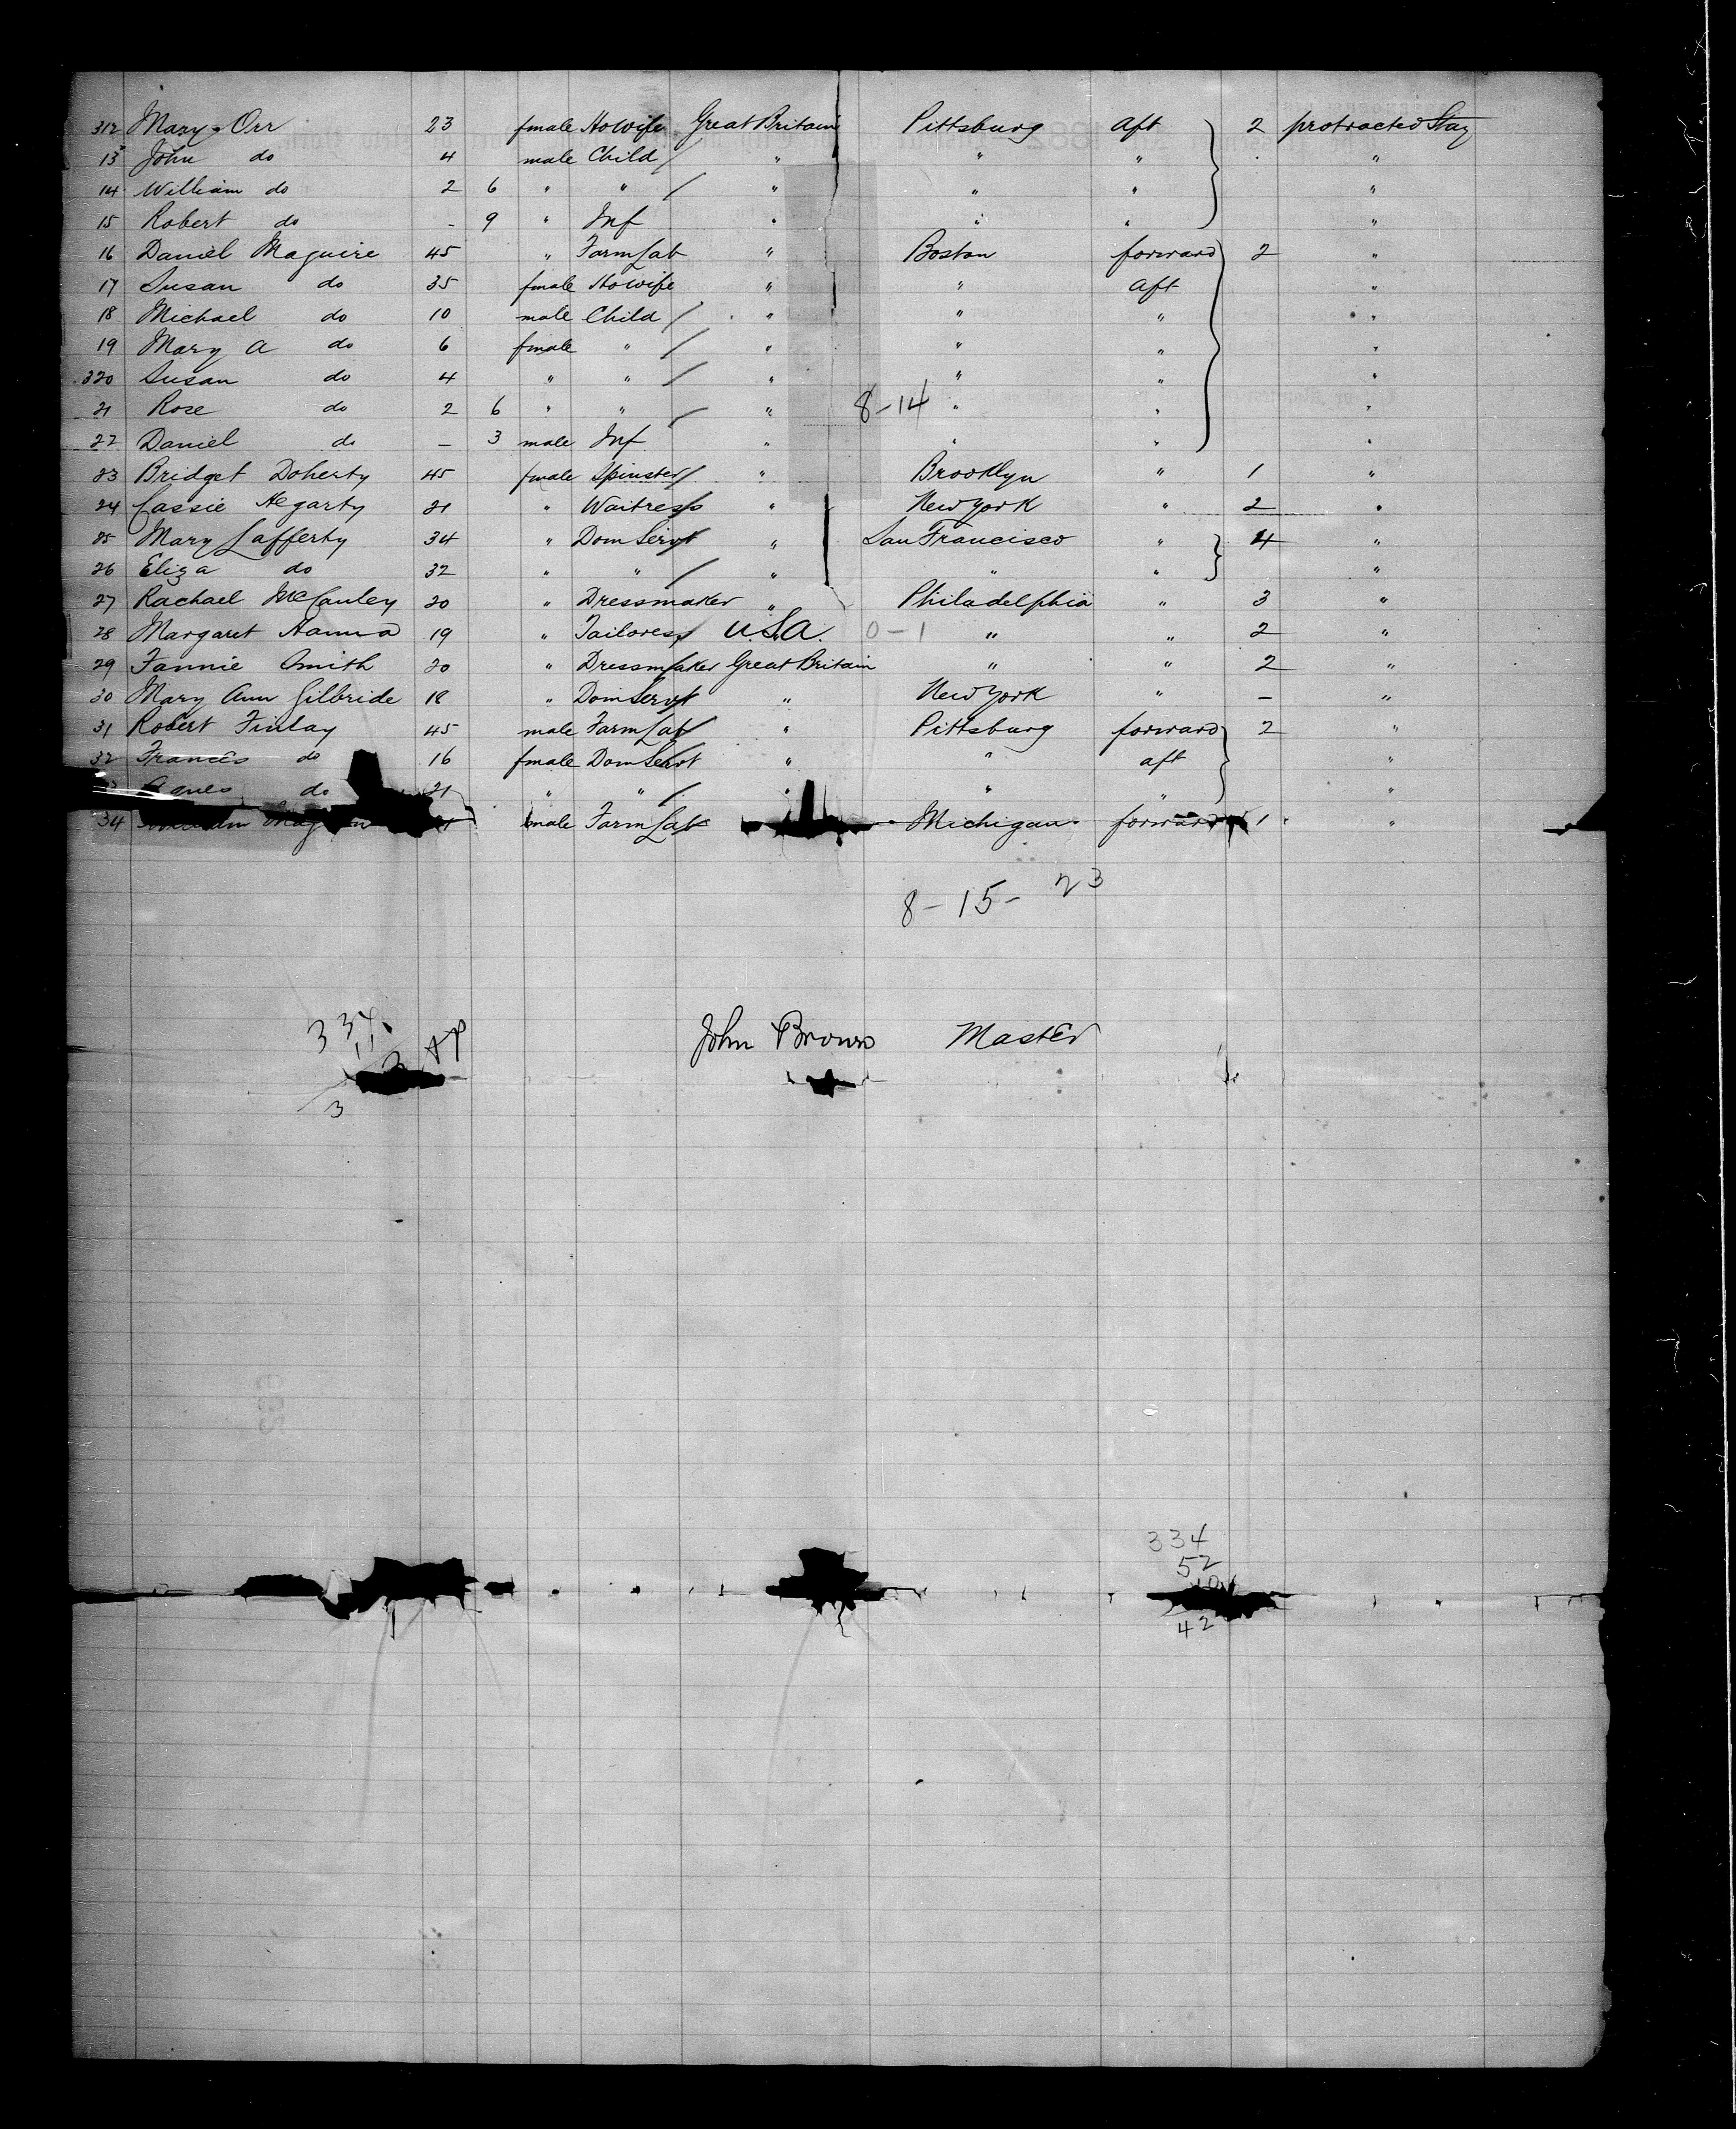 312 Mary Orr 23 fmale Howife Great Britain Pittsburg aft 2 protracted Stay
13 John do 4 male Child / " " " "
14 William do 2 6 " " / " " " "
15 Robert do - 9 " Inf " " " "
16 Daniel Maguire 45 " Farm Lab " Boston forward 2 "
17 Susan do 35 fmale Howife " " aft "
18 Michael do 10 male Child / " " " "
19 Mary A do 6 fmale " / " " " "
320 Susan do 4 " " / " " " "
21 Rose do 2 6 " " / " 8-14 " " "
22 Daniel do - 3 male Inf " " " "
23 Bridget Doherty 45 fmale Spinster / " Brooklyn " 1 "
24 Cassie Hegarty 21 " Waitress " New York " 2 "
25 Mary Lafferty 34 " Dom Servt " San Francisco " 4 "
26 Eliza do 32 " " / " " " "
27 Rachael McCauley 20 " Dressmaker " Philadelphia " 3 "
28 Margaret Hanna 19 " Tailoress U.S.A. 0-1 " " 2 "
29 Fannie Smith 20 " Dressmaker Great Britain " " 2 "
30 Mary Ann Gilbride 18 " Dom Servt " New York " - "
31 Robert Finlay 45 male Farm Lab " Pittsburg forward 2 "
32 Francis do 16 fmale Dom Servt " " aft "
Agnes do 21 " " / " " " "
34 male Farm Lab Michigan forward 1 "
8-15-23
334
11
3
John Brown Master
3
334
52
42